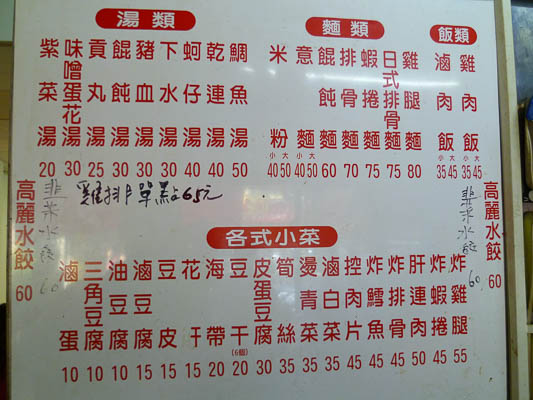 湯類
紫菜湯 20
味噌蛋花湯 30
貢丸湯 25
餛飩湯 30
豬血湯 30
下水湯 30
蚵仔湯 40
乾連湯 40
鯛魚湯 50
麵類
米粉 小40 大50
意麵 小40 大50
餛飩麵 60
排骨麵 70
蝦捲麵 75
日式排骨麵 75
雞腿麵 80
飯類
滷肉飯 小35 大45
雞肉飯 小35 大45
雞排單點65元
高麗水餃 60
韭菜水餃 60
各式小菜
滷蛋 10
三角豆腐 10
油豆腐 10
滷豆腐 15
豆皮 15
花干 15
海帶 20
豆干(6個) 20
皮蛋豆腐 30
筍絲 35
燙青菜 35
滷白菜 35
控肉片 45
炸鱈魚 45
炸排骨 45
肝連肉 50
炸蝦捲 45
炸雞腿 55
高麗水餃 60
韭菜水餃 60